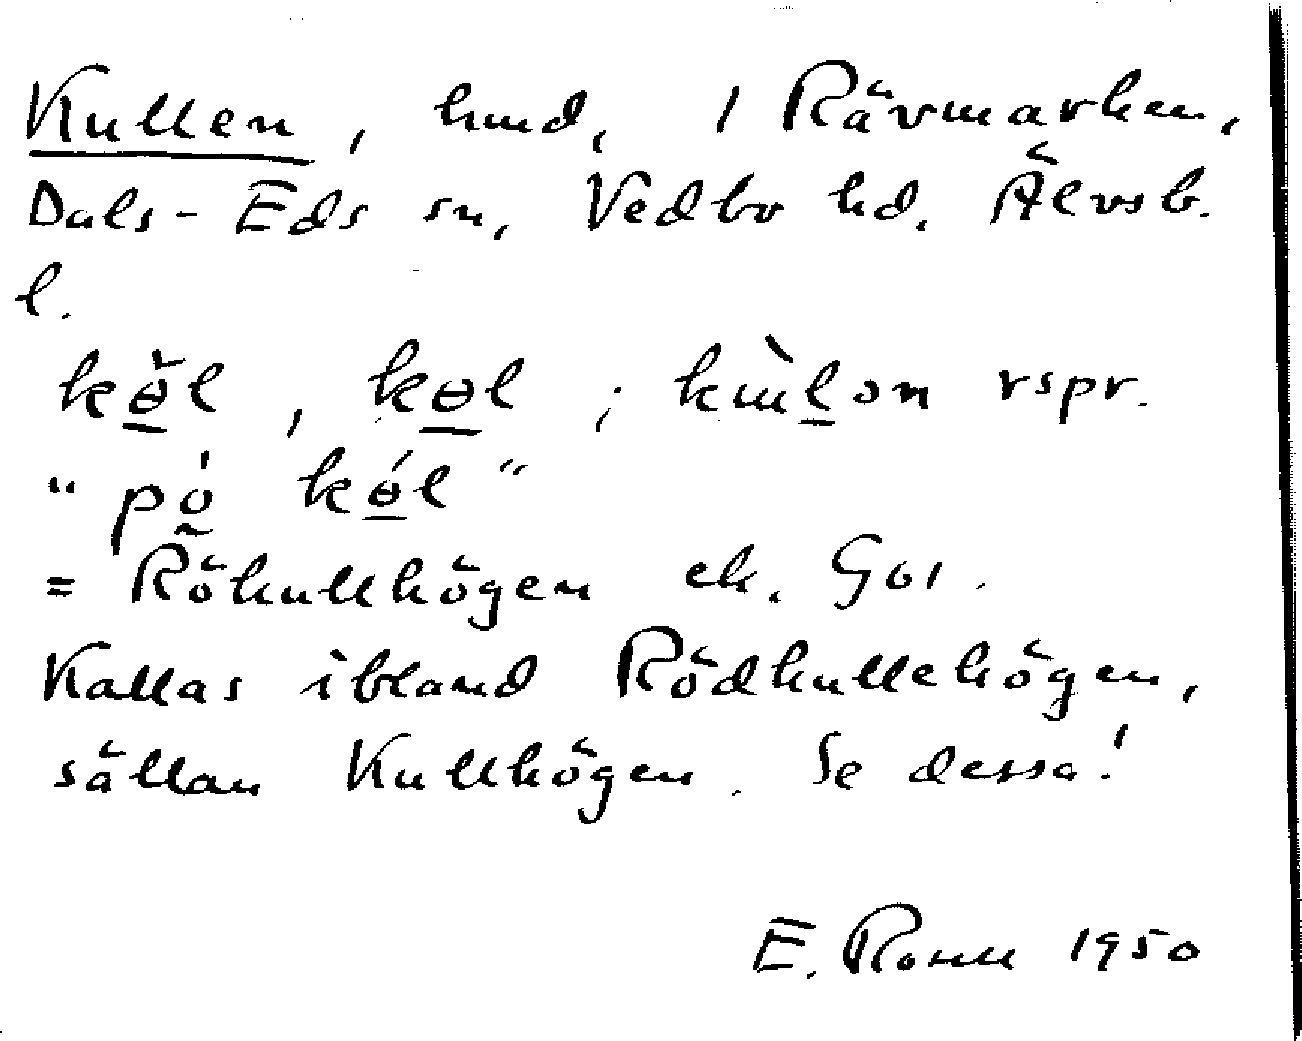 Kullen, hmd, 1 Rävmarken,
Dals-Eds sn, Vedbo hd. Älvsb.
l.
rspr.
= Rökullhögen ek. G01.
Kallas ibland Rödkullehögen,
sällan Kullhögen. Se dessa!
E. Rosell 1950